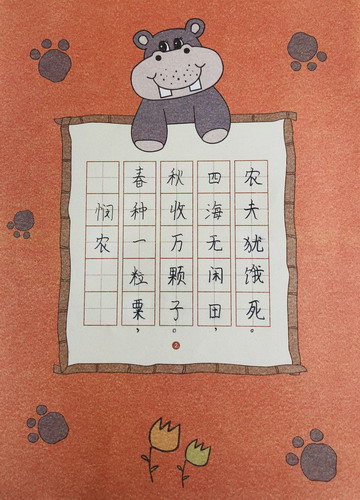 悯农
春种一粒粟，
秋收万颗子。
四海无闲田，
农夫犹饿死。
2